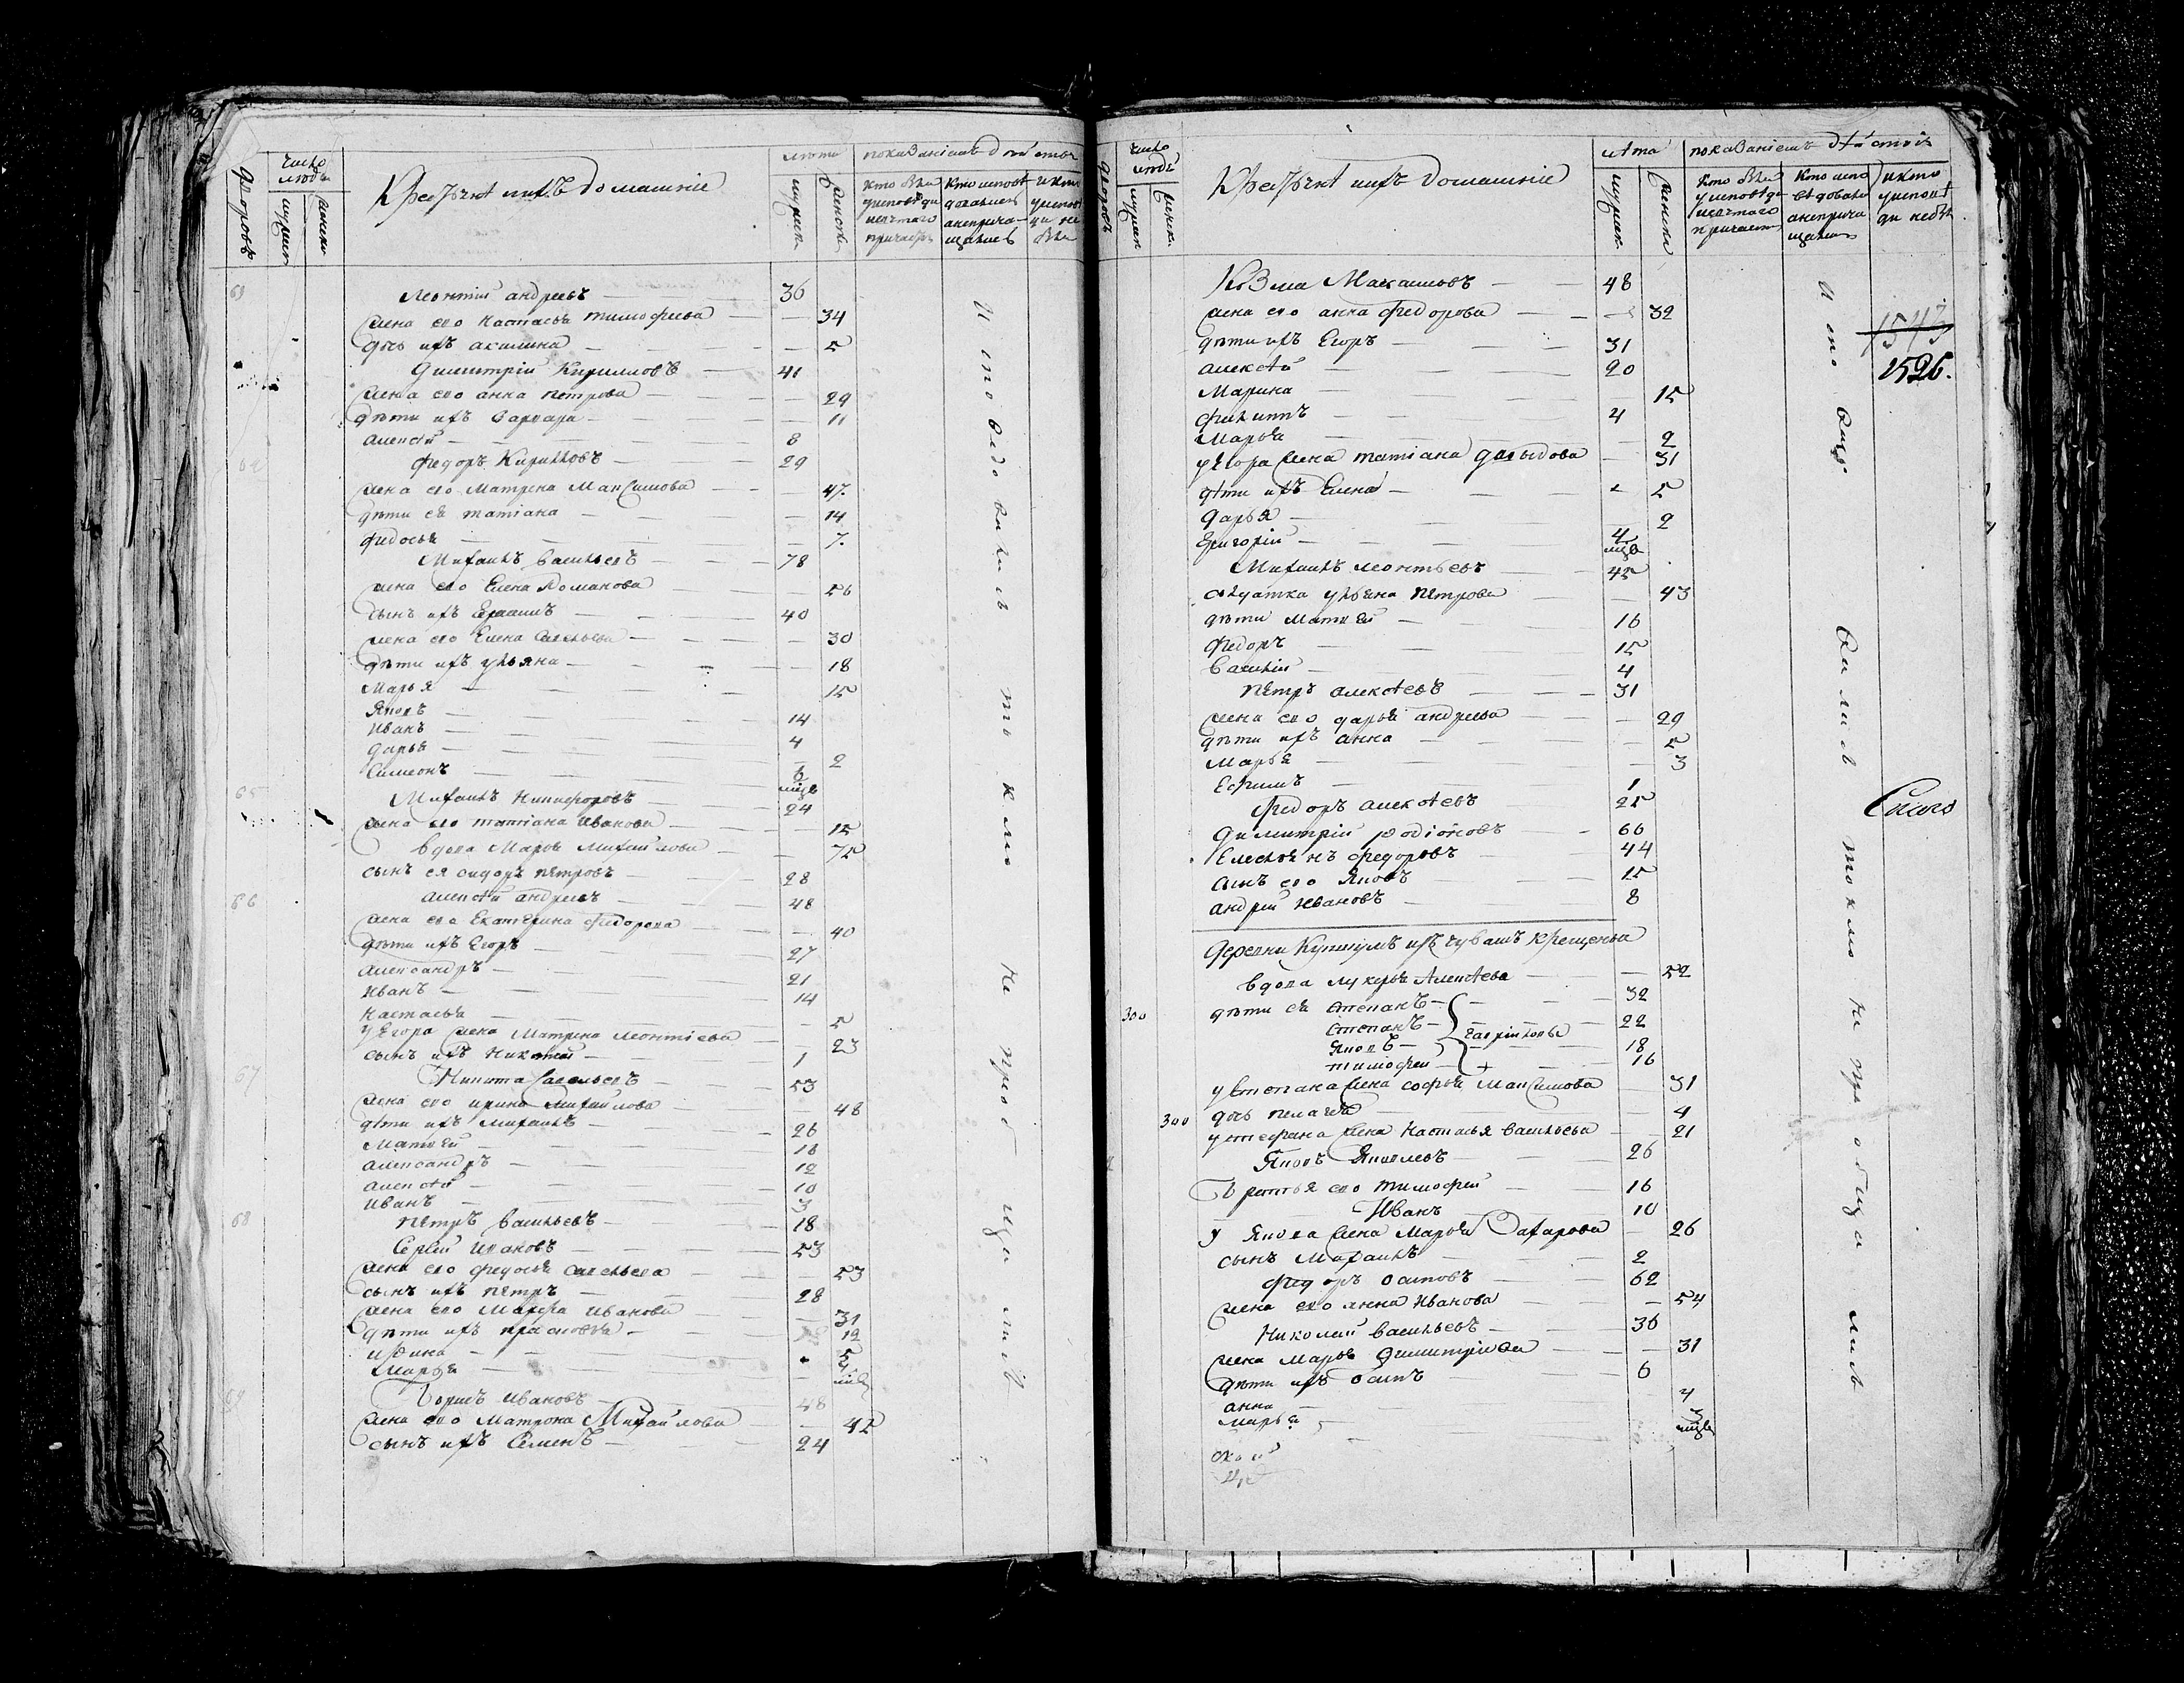 дворовъ
число людей
мужеска
женска
Крестьяне и ихъ домашніе
лѣта
мужеска
женска
показаніемъ дѣйства
кто былъ у исповѣди и св҃ятаго причастія
кто исповѣдовался а не причащался
и кто у исповѣди не былъ
63
Леонтий андреевъ — 36
жена его настасья тимофеева — 34
дочь ихъ акилина — 5
Димитрій Кирилловъ — 41
жена его анна петрова — 29
дѣти ихъ варвара — 11
алексѣй — 8
64
федоръ Кирилловъ — 29
жена его Матрена Максимова — 47
дѣти ея татіана — 14
федосья — 7
Михаилъ васильевъ — 78
жена его Елена Романова — 56
сынъ ихъ Герасимъ — 40
жена его Елена савельева — 30
дѣти ихъ ульяна — 18
Марья — 15
Яковъ — 14
Иванъ — 4
дарья — 2
Симеонъ — 6 мцв
65
Михаилъ Никифоровъ — 24
жена его татіана Иванова — 15
вдова Марья михайлова — 75
сынъ ея сидоръ петровъ — 28
66
алексѣй андреевъ — 48
жена его Екатерина федорова — 40
дѣти ихъ Егоръ — 27
александръ — 21
Иванъ — 14
настасья — 5
у Егора жена Матрена леонтіева — 23
сынъ ихъ Никита — 1
67
Никита Савельевъ — 53
жена его ирина михайлова — 48
дѣти ихъ михаилъ — 26
Матвей — 16
александръ — 12
алексѣй — 10
иванъ — 3
68
петръ васильевъ — 18
Сергѣй ивановъ — 53
жена его федосья савельева — 53
сынъ ихъ петръ — 28
жена его Марфа иванова — 31
дѣти ихъ прасковья — 12
ирина — 5
Марья — 5 мцв
69
Борисъ ивановъ — 48
жена его Матрона Михайлова — 42
сынъ ихъ Семенъ — 24
Исповедовались токмо не приобщились
дворовъ
число людей
мужеска
женска
Крестьяне и ихъ домашніе
лѣта
мужеска
женска
показаніемъ дѣйства
кто былъ у исповѣди и св҃ятаго причастія
кто исповѣдовался а не причащался
и кто у исповѣди не былъ
Козма Максимовъ — 48
жена его анна федорова — 32
дѣти ихъ Егоръ — 31
алексѣй — 20
Марина — 15
филиппъ — 4
Марья — 2
у Егора жена татіана давыдова — 31
дѣти ихъ Елена — 5
дарья — 2
Григорій — 4 мцв
Михаилъ леонтьевъ — 45
солдатка ульяна петрова — 43
дѣти Матвей — 16
федоръ — 15
василій — 4
петръ алексѣевъ — 31
жена его дарья андреева — 29
дѣти ихъ анна — 5
Марья — 3
Ефимъ — 1
федоръ алексѣевъ — 25
Димитрій родіоновъ — 66
федоровъ — 44
сынъ его Яковъ — 15
андрей ивановъ — 8
деревни изъ чувашъ крещеныя
вдова лукерья Алексѣева — 52
300
дѣти ея степанъ — 32
степанъ — 22
Яковъ — 18
тимофей — 16
Гавриловы
у степана жена софья Максимова — 31
300
дочь пелагея — 4
у стефана жена настасья васильева — 21
Яковъ Яковлевъ — 26
Братья его тимофей — 16
Иванъ — 10
У Якова жена Марья Захарова — 26
сынъ Михаилъ — 2
федоръ осиповъ — 62
жена его анна Иванова — 54
Николай васильевъ — 36
жена Марья димитріева — 31
дѣти ихъ осипъ — 6
анна — 4
Марья — 3 мцв
1526.